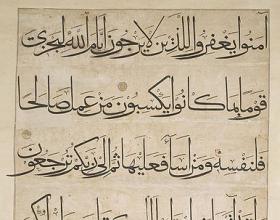 آمنوا يغفروا للذين لا يرجون أيام الله ليجزي
قوما بما كانوا يكسبون من عمل صالحا
فلنفسه ومن أساء فعليها ثم إلى ربكم ترجعون